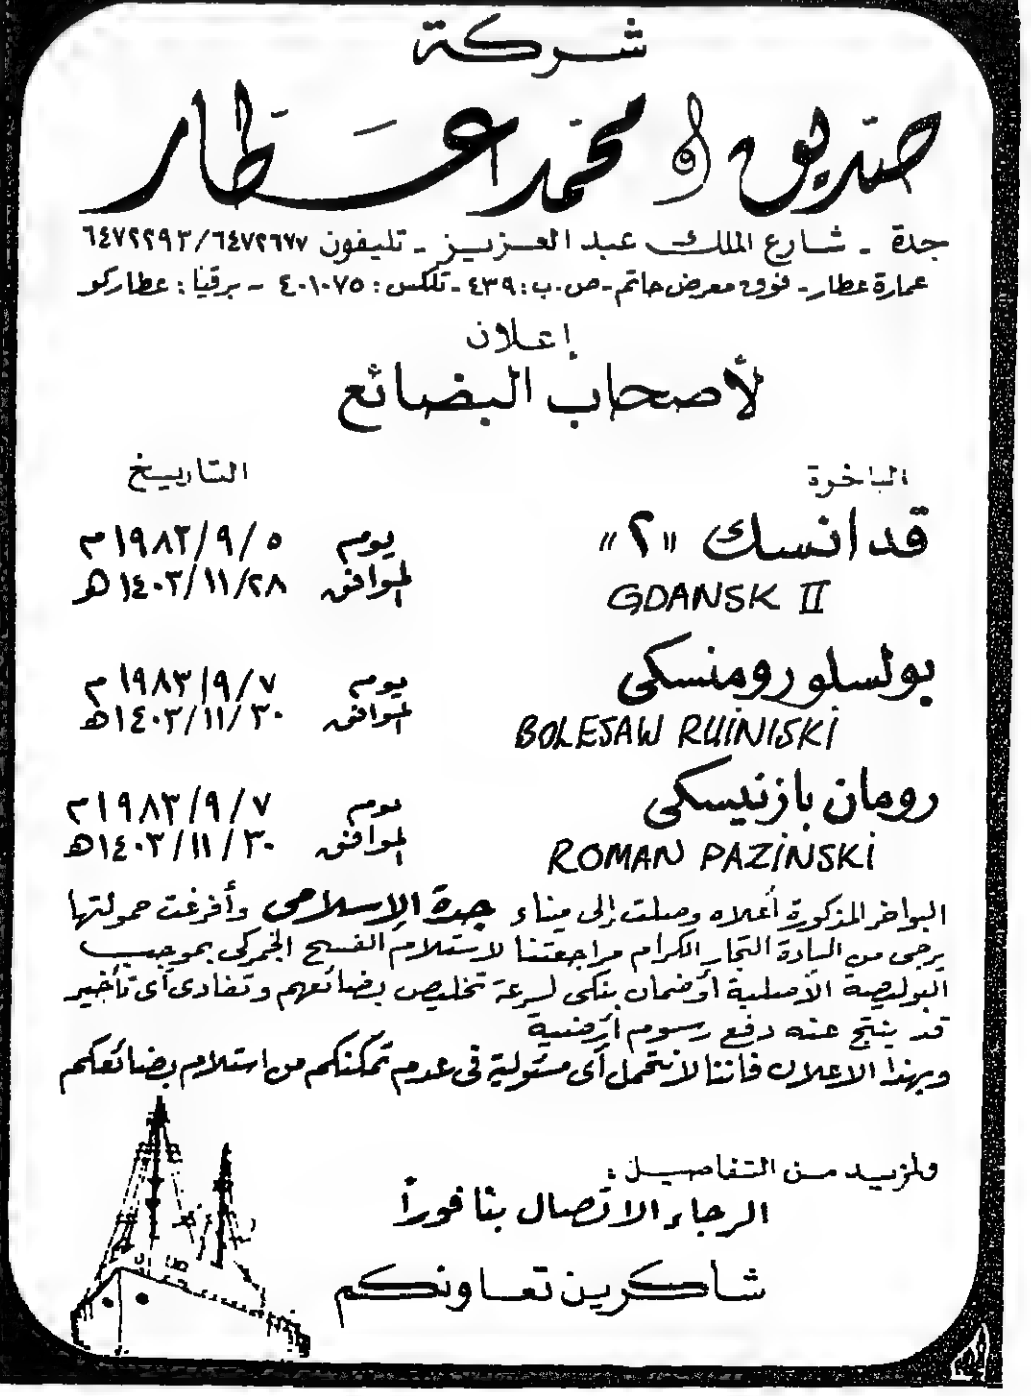 شركة
صديق و محمد عطار
جدة - شارع الملك عبد العزيز - تليفون ٦٤٧٢٦٧٧/٦٤٧٢٢٩٣
عمارة عطار - فوق معرض حاتم - ص.ب: ٤٣٩ - تلكس: ٤٠١٠٧٥ - برقيا: عطاركو
إعلان
لأصحاب البضائع
الباخرة التاريخ
قدانسك "٢" يوم ١٩٨٣/٩/٥م
GDANSK II الموافق ١٤٠٣/١١/٢٨هـ
بولسلو رومنسكى يوم ١٩٨٣/٩/٧م
BOLESAW RUINISKI الموافق ١٤٠٣/١١/٣٠هـ
رومان بازنيسكى يوم ١٩٨٣/٩/٧م
ROMAN PAZINSKI الموافق ١٤٠٣/١١/٣٠هـ
البواخر المذكورة أعلاه وصلت إلى ميناء جدة الإسلامى وأفرغت حمولتها
يرجى من السادة التجار الكرام مراجعتنا لاستلام الفسح الجمركى بموجب
البوليصة الأصلية أو ضمان بنكى لسرعة تخليص بضائعهم وتفادى أى تأخير
قد ينتج عنه دفع رسوم أرضية
وبهذا الاعلان فاننا لانتحمل أى مسئولية فى عدم تمكنكم من استلام بضائعكم
ولمزيد من التفاصيل:
الرجاء الاتصال بنا فوراً
شاكرين تعاونكم